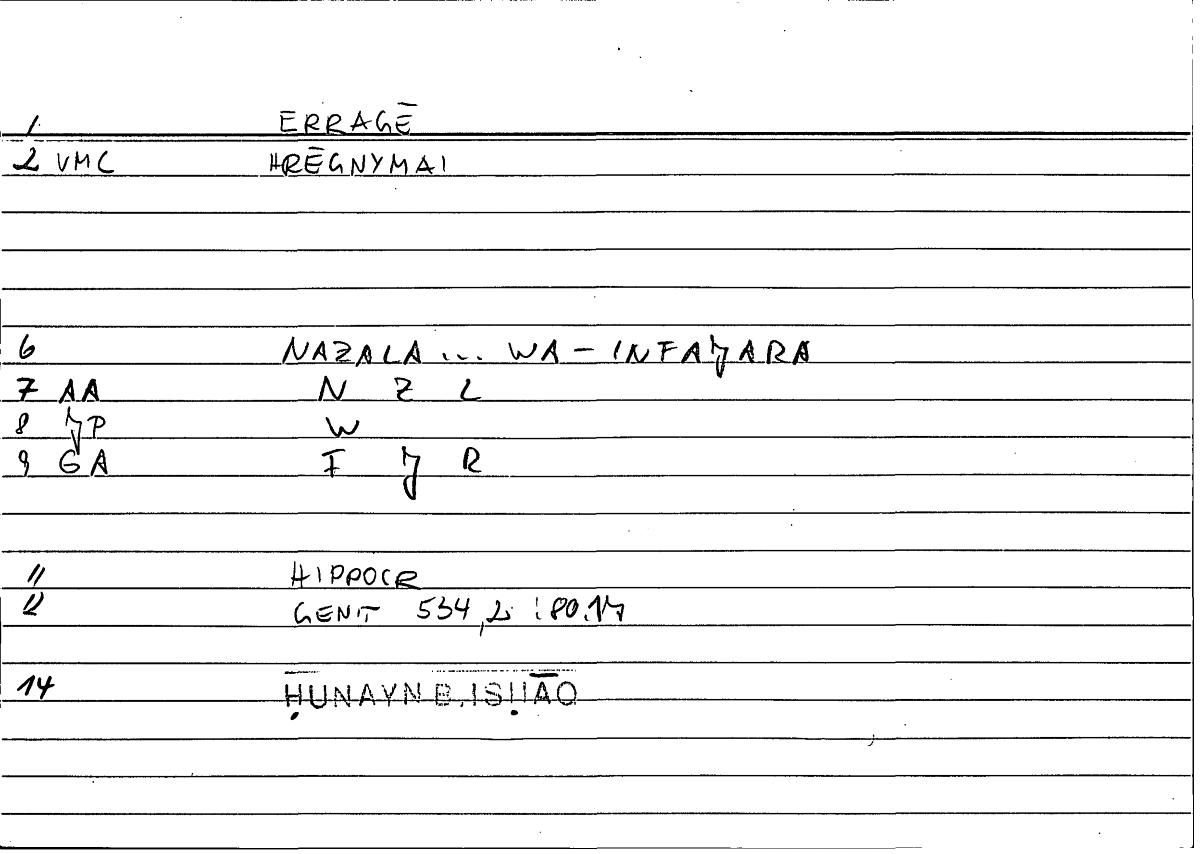 1 ERRAGĒ
2 VMC HRĒGNYMAI
6 NAZALA ... WA-INFAJARA
7 AA N Z L
8 JP W
9 GA F J R
11 HIPPOCR
12 GENIT 534,2 : 80.17
14 ḤUNAYN B. ISḤĀQ